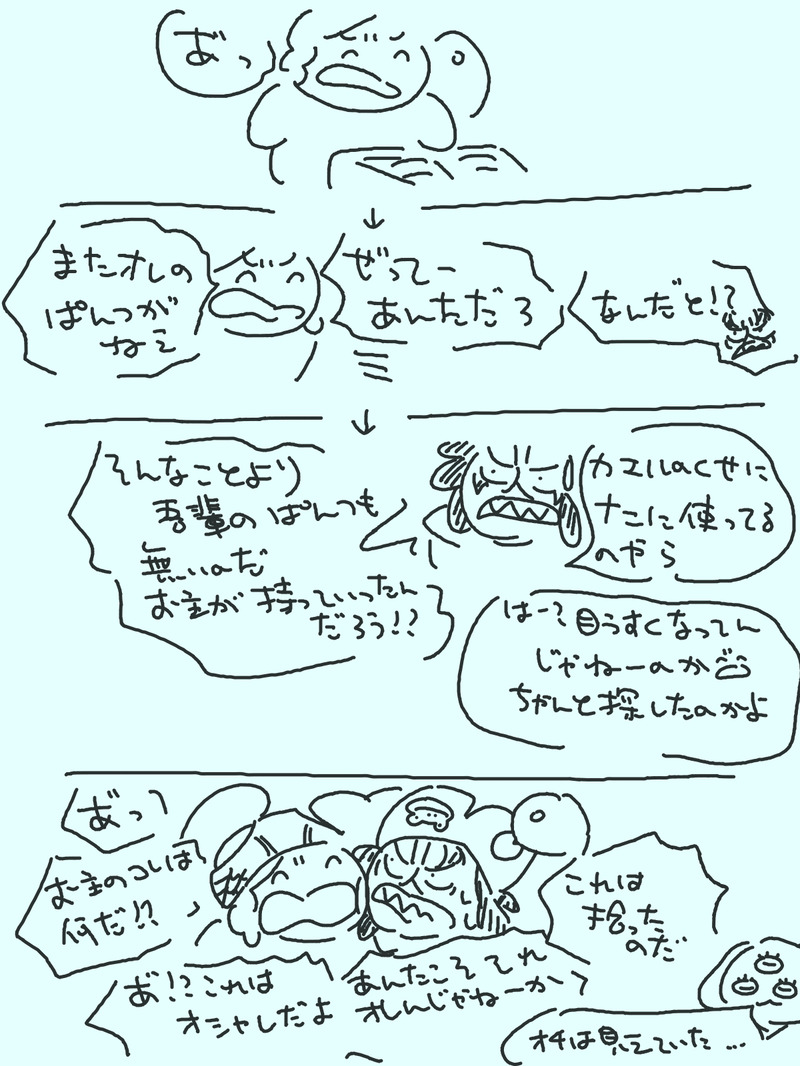 あ゛っ
またオレの
ぱんつが
ねェ
ぜってー
あんただろ
なんだと!?
そんなことより
吾輩のぱんつも
無いのだ
お主が持っていったん
だろう!?
カエルのくせに
ナニに使ってる
のやら
はー?目うすくなってん
じゃねーのか
ちゃんと探したのかよ
あ゛っ
お主のコレは
何だ!?
これは
拾った
のだ
あ゛!?これは
オシャレだよ
あんたこそそれ
オレんじゃねーか
オチは見えていた…